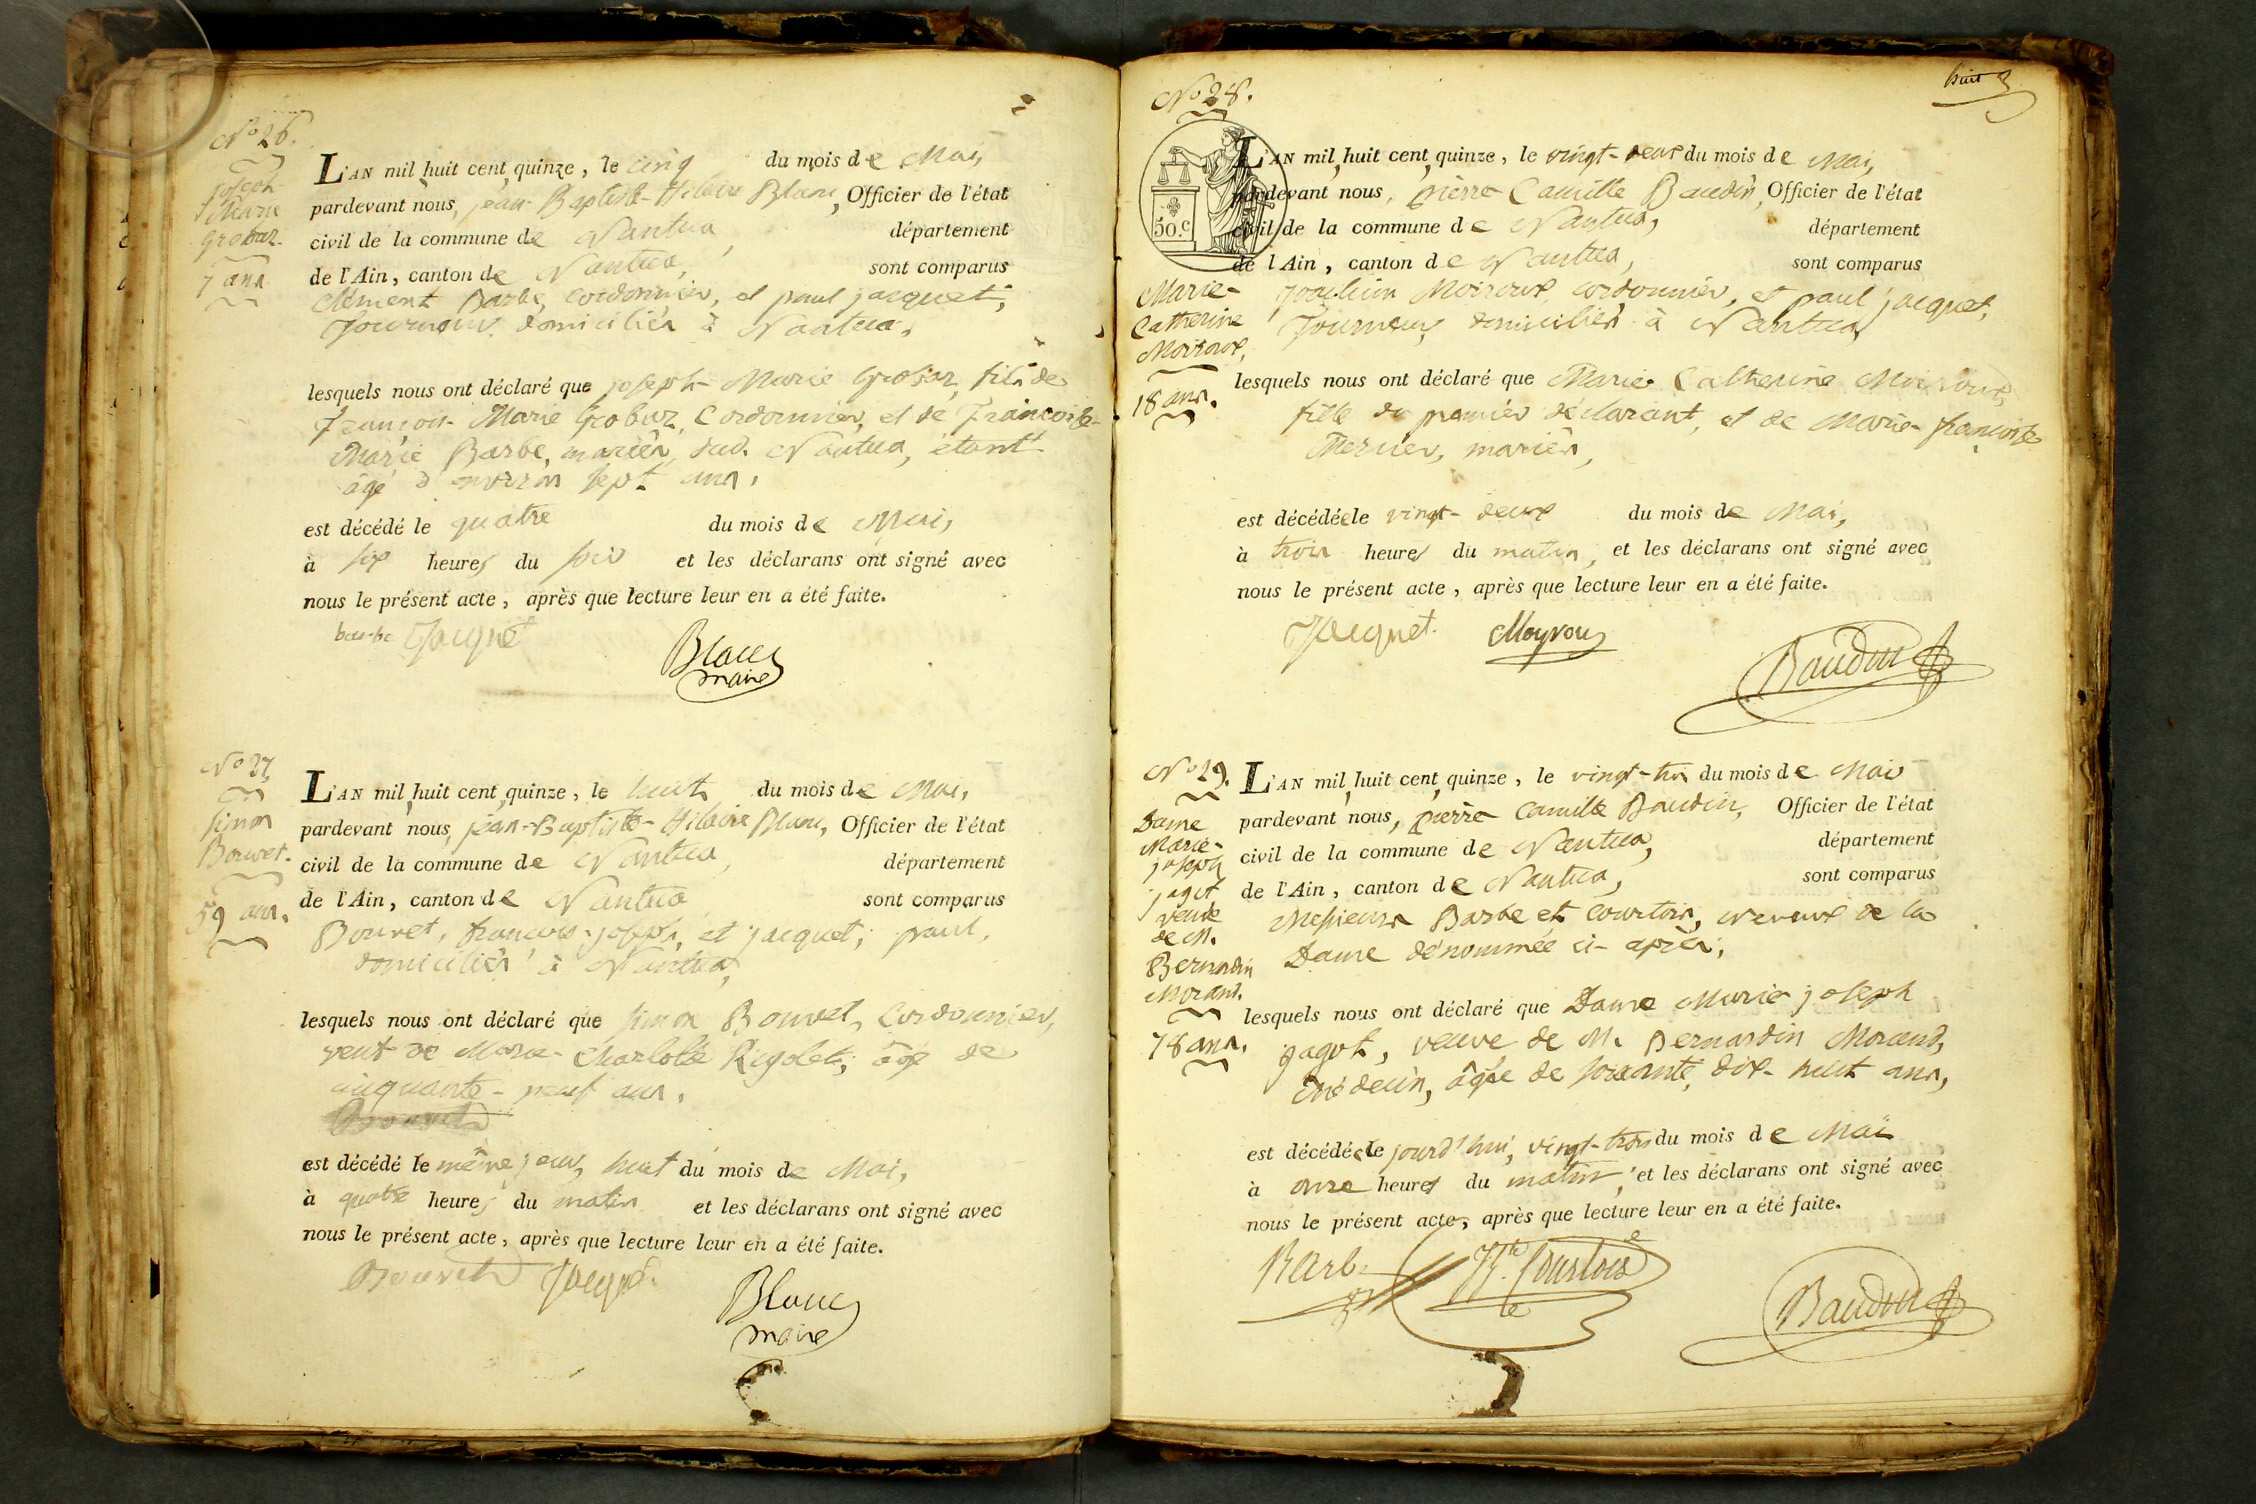 No 26.
Joseph
Marie
Grobaz.
7 ans
L'AN mil huit cent quinze, le cinq du mois de Mai,
pardevant nous, jean-Baptiste-Hilaire Blanc, Officier de l'état
civil de la commune de Nantua, département
de l'Ain, canton de Nantua, sont comparus
Clément Barbe, cordonnier, et paul jacquet,
domiciliés à Nantua,
lesquels nous ont déclaré que joseph-Marie Grobaz, fils de
François-Marie Grobaz, Cordonnier, et de Françoise-
Marie Barbe, mariés, dud. Nantua, étant
âgé d'environ sept ans,
est décédé le quatre du mois de Mai,
à six heures du soir et les déclarans ont signé avec
nous le présent acte, après que lecture leur en a été faite.
barbe Jacquet
Blanc
maire
No 27,
Simon
Bouvet.
59 ans.
L'AN mil huit cent quinze, le huit du mois de Mai,
pardevant nous, jean-Baptiste-Hilaire Blanc, Officier de l'état
civil de la commune de Nantua, département
de l'Ain, canton de Nantua sont comparus
Bouvet, françois-joseph, et jacquet, paul,
domiciliés à Nantua,
lesquels nous ont déclaré que Simon Bouvet, Cordonnier,
veuf de Marie-Charlotte Rigolet, âgé de
cinquante-neuf ans.
est décédé le même jour, huit du mois de Mai,
à quatre heures du matin et les déclarans ont signé avec
nous le présent acte, après que lecture leur en a été faite.
Bouvet Jacquet
Blanc
maire
huit
No 28.
50.c
Marie-
Catherine
Moiroux,
18 ans.
L'AN mil huit cent quinze, le vingt-deux du mois de Mai,
pardevant nous, pierre Camille Baudin, Officier de l'état
civil de la commune de Nantua, département
de l'Ain, canton de Nantua, sont comparus
Moiroux, cordonnier, et paul jacquet,
domiciliés à Nantua
lesquels nous ont déclaré que Marie-Catherine Moiroux,
fille du premier déclarant, et de Marie-françoise
Mercier, mariés,
est décédée le vingt-deux du mois de Mai,
à trois heures du matin, et les déclarans ont signé avec
nous le présent acte, après que lecture leur en a été faite.
Jacquet. Moyroux
Baudin
No 29.
Dame
Marie-
joseph
jagot
veuve
de M.
Bernardin
Morand.
78 ans.
L'AN mil huit cent quinze, le vingt-trois du mois de Mai
pardevant nous, pierre Camille Baudin, Officier de l'état
civil de la commune de Nantua, département
de l'Ain, canton de Nantua, sont comparus
Messieurs Barbe et Courtois, neveux de la
Dame dénommée ci-après,
lesquels nous ont déclaré que Dame Marie joseph
jagot, veuve de M. Bernardin Morand,
médecin, âgée de soixante-dix-huit ans,
est décédée le jourd'hui, vingt-trois du mois de Mai
à onze heures du matin, et les déclarans ont signé avec
nous le présent acte, après que lecture leur en a été faite.
Barbe Courtois
Baudin